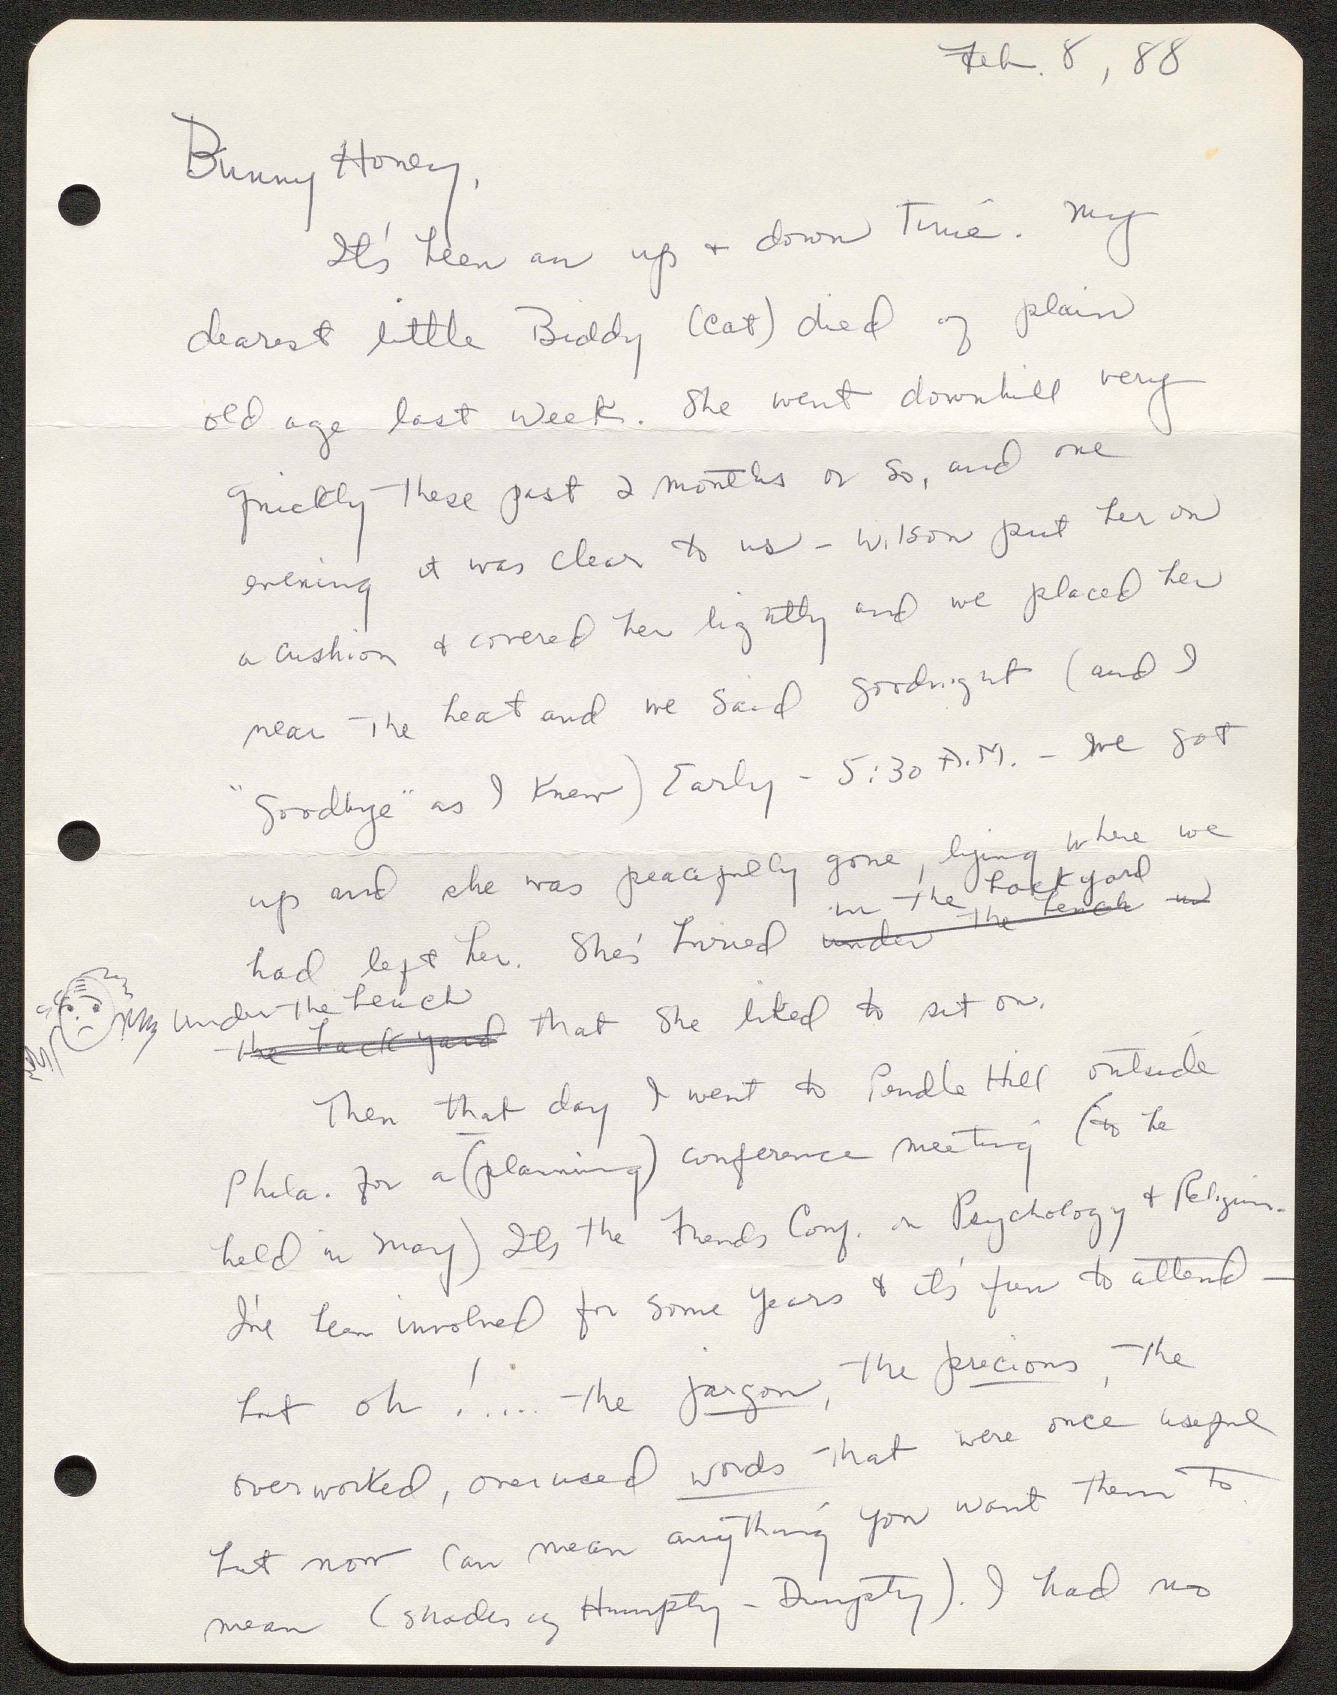 Feb. 8, 88
Bunny Honey,
It's been an up + down time. My
dearest little Biddy (cat) died of plain
old age last week. She went downhill very
quickly these past 2 months or so, and one
evening it was clear to us - Wilson put her on
a cushion & covered her lightly and we placed her
near the heat and we said goodnight (and I
"goodbye" as I knew) Early - 5:30 A.M. - we got
up and she was peacefully gone, lying where we
had left her. She's buried in the backyard under the bench in
under the bench the back yard that she liked to sit on.
Then that day I went to Pendle Hill outside
Phila. for a (planning) conference meeting (to be
held in May) It's the Friends Conf. on Psychology & Religion.
I've been involved for some years & it's fun to attend -
but oh! .... the jargon, the precious, the
overworked, overused words that were once useful
but now can mean anything you want them to
mean (shades of Humpty - Dumpty). I had no